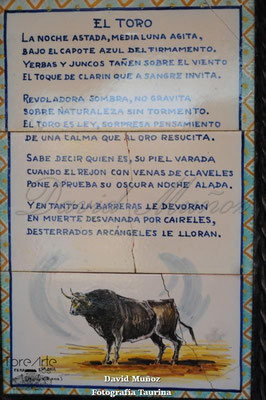 EL TORO
LA NOCHE ASTADA, MEDIA LUNA AGITA,
BAJO EL CAPOTE AZUL DEL FIRMAMENTO.
YERBAS Y JUNCOS TAÑEN SOBRE EL VIENTO
EL TOQUE DE CLARIN QUE A SANGRE INVITA.
REVOLADORA SOMBRA, NO GRAVITA
SOBRE NATURALEZA SIN TORMENTO.
EL TORO ES LEY, SORPRESA PENSAMIENTO
DE UNA CALMA QUE AL ORO RESUCITA.
SABE DECIR QUIEN ES, SU PIEL VARADA
CUANDO EL REJON CON VENAS DE CLAVELES
PONE A PRUEBA SU OSCURA NOCHE ALADA.
Y EN TANTO LA BARRERAS LE DEVORAN
EN MUERTE DESVANADA POR CAIRELES,
DESTERRADOS ARCANGELES LE LLORAN.
ToreArte
David Muñoz
Fotografía Taurina